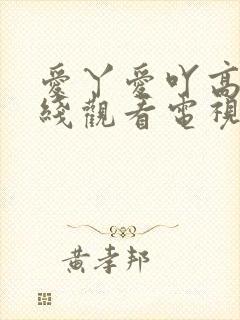 愛丫愛吖高
綫觀看電視
黃孝邦